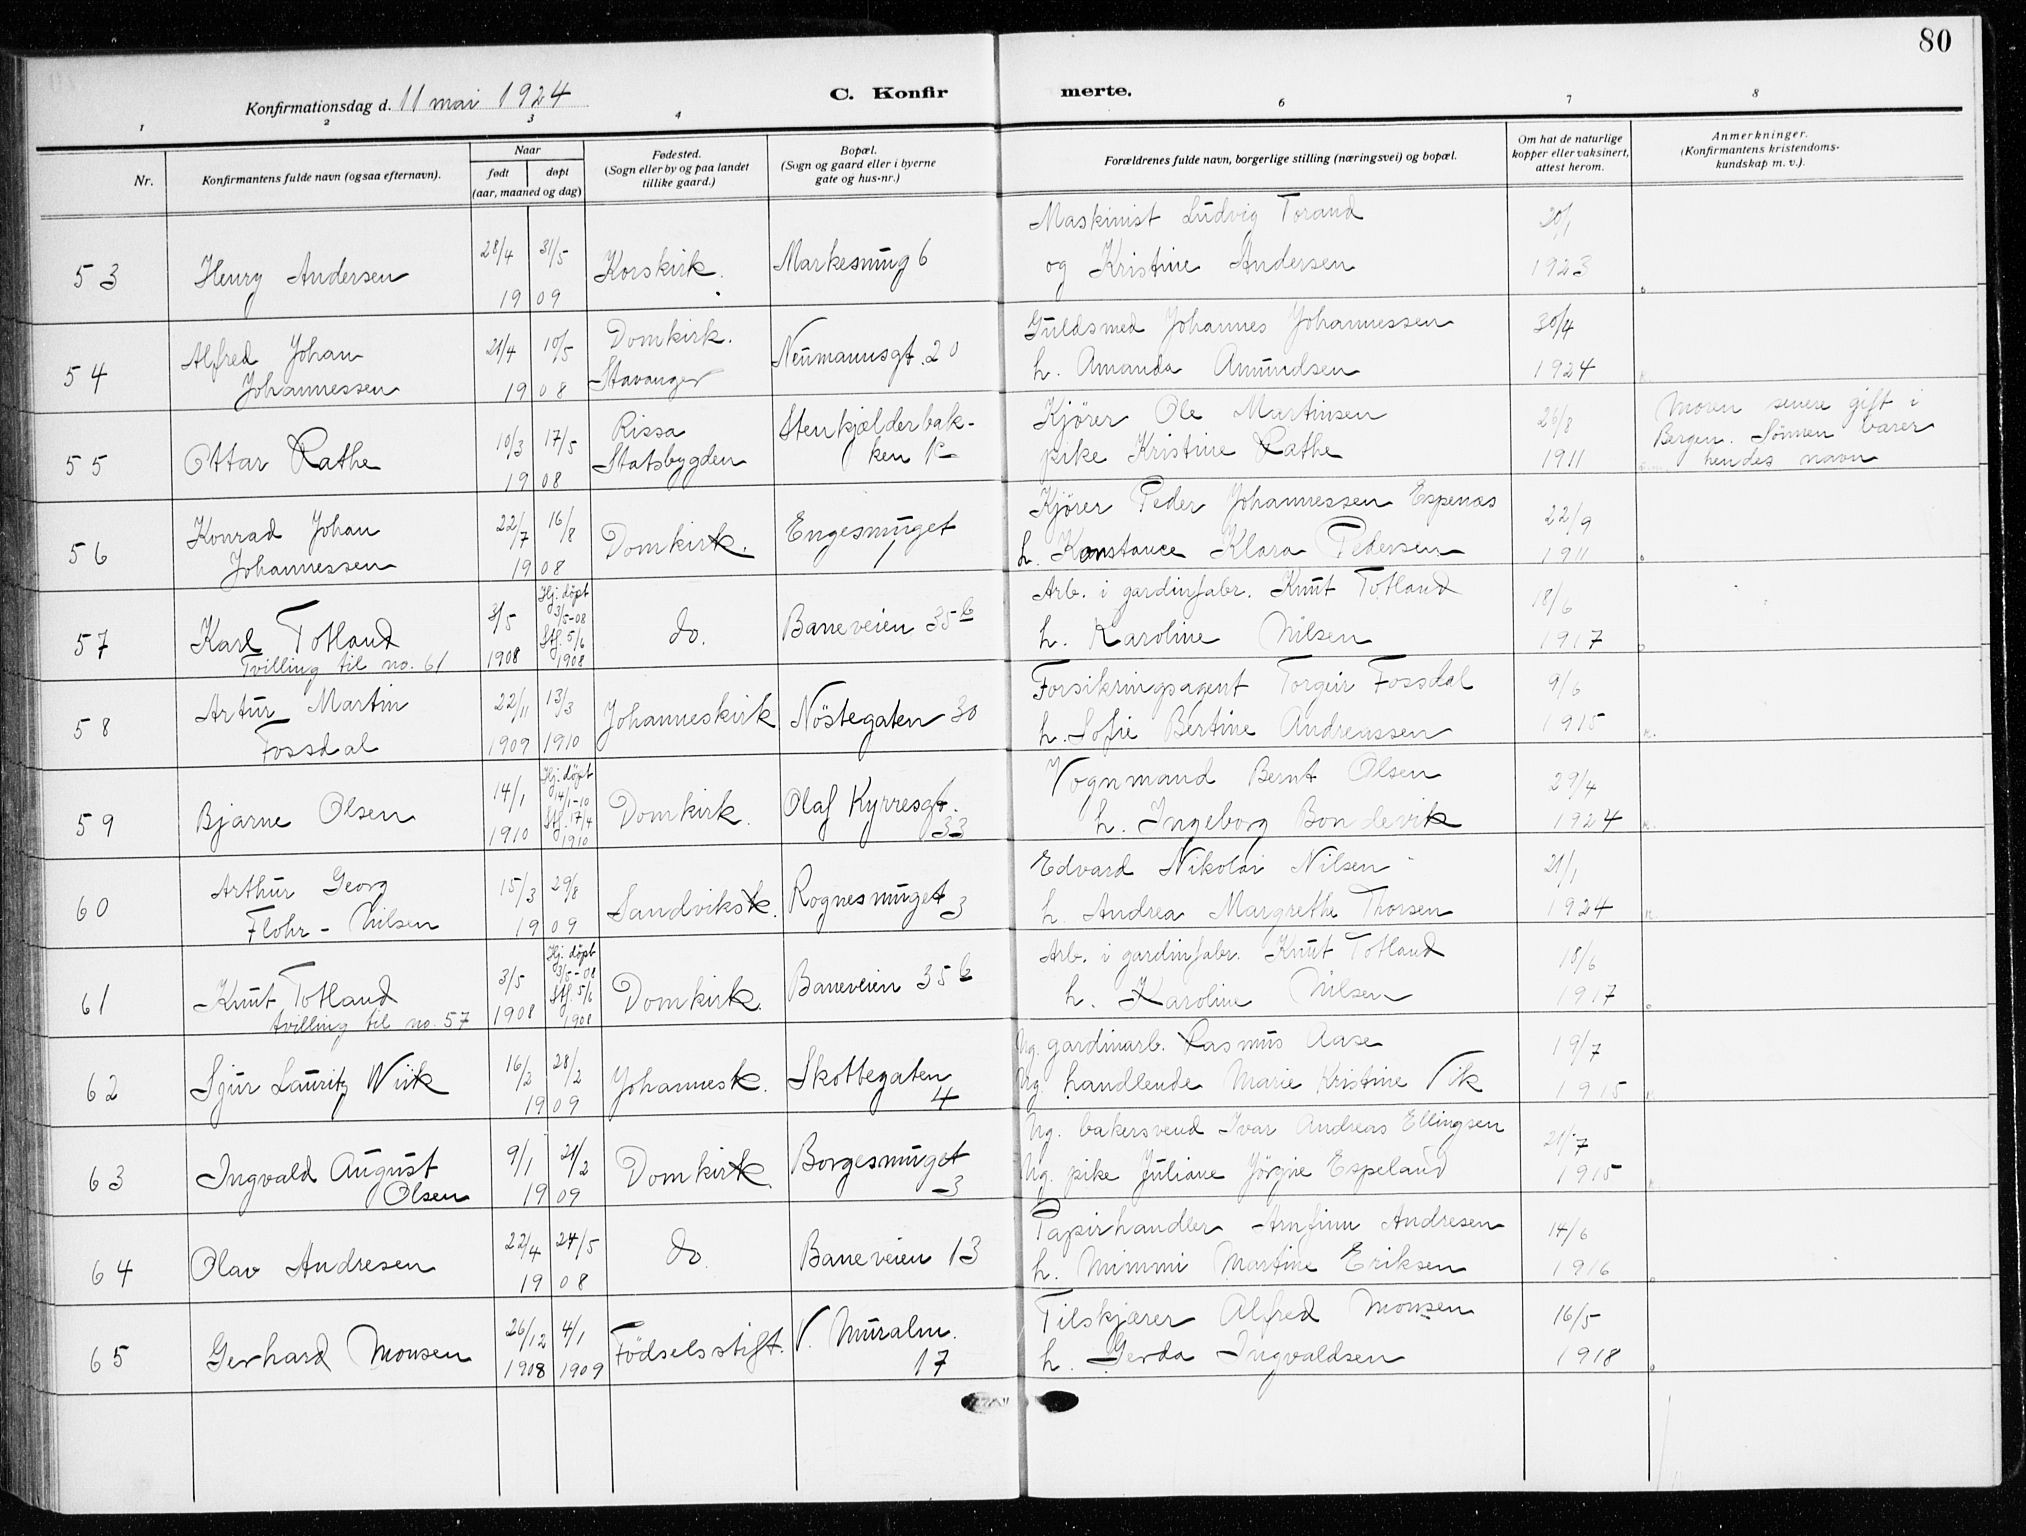 80
Konfirmationsdag d. 11 mai 1924
C. Konfir
merte.
1 2 3 4 6 7 8
Nr.
Konfirmantens fulde navn (ogsaa efternavn).
Naar
født
døpt
(aar, maaned og dag)
Fødested.
(Sogn eller by og paa landet
tillike gaard.)
Bopæl.
(Sogn og gaard eller i byerne
gate og hus-nr.)
Forældrenes fulde navn, borgerlige stilling (næringsvei) og bopæl.
Om hat de naturlige
kopper eller vaksinert,
attest herom.
Anmerkninger.
(Konfirmantens kristendoms-
kundskap m. v.).
53
Henry Andersen
28/4 31/5
1909
Korskirk.
Markesmug 6
Maskinist Ludvig Torand
og Kristine Andersen
20/1
1923
54
Alfred Johan
Johannessen
21/4 10/5
1908
Domkirk.
Stavanger
Neumannsgt. 20
Guldsmed Johannes Johannessen
h. Amanda Amundsen
30/4
1924
55
Ottar Rathe
10/3 17/5
1908
Rissa
Statsbygden
Stenkjælderbak-
ken
Kjører Ole Martinsen
pike Kristine Rathe
26/8
1911
Moren senere gift i
Bergen. Sønnen bærer
hendes navn
56
Konrad Johan
Johannessen
22/7 16/8
1908
Domkirk.
Engesmuget
1
Kjører Peder Johannessen Espenæs
h. Konstance Klara Pedersen
22/9
1911
57
Karl Totland
Tvilling til no. 61
3/5
1908
Hj. døpt
3/5-08
Stf. 5/6
1908
do.
Baneveien 35 b
Arb. i gardinfabr. Knut Totland
h. Karoline Nilsen
18/6
1917
58
Artur Martin
Fossdal
22/11 13/3
1909 1910
Johanneskirk
Nöstegaten 30
Forsikringsagent Torgeir Fossdal
h. Sofie Bertine Andreassen
9/6
1915
59
Bjarne Olsen
14/1
1910
Hj. døpt
14/1-10
Stf. 17/4
1910
Domkirk.
Olaf Kyrresgt.
33
Vognmand Bernt Olsen
h. Ingeborg Bondevik
29/4
1924
60
Arthur Georg
Flohr - Nilsen
15/3 29/8
1909
Sandviksk.
Rognesmuget
3
Edvard Nikolai Nilsen
h. Andrea Margrethe Thorsen
21/1
1924
61
Knut Totland
tvilling til no. 57
3/5
1908
Hj. døpt
3/5-08
Stf. 5/6
1908
Domkirk.
Baneveien 35 b
Arb. i gardinfabr. Knut Totland
h. Karoline Nilsen
18/6
1917
62
Sjur Lauritz Wiik
16/2 28/2
1909
Johannesk.
Skottegaten
4
Ug. gardinarb. Rasmus Aase
Ug. handlende Marie Kristine Vik
19/7
1915
63
Ingvald August
Olsen
9/1 21/2
1909
Domkirk.
Borgesmuget
3
Ug. bakersvend Ivar Andreas Ellingsen
Ug. pike Juliane Jörgine Espeland
21/7
1915
64
Olav Andresen
22/4 24/5
1908
do.
Baneveien 13
Papirhandler Arnfinn Andresen
h. Mimmi Martine Eriksen
14/6
1916
65
Gerhard Monsen
26/12 4/1
1908 1909
Födselsstift.
V. Muralm.
17
Tilskjærer Alfred Monsen
h. Gerda Ingvaldsen
16/5
1918